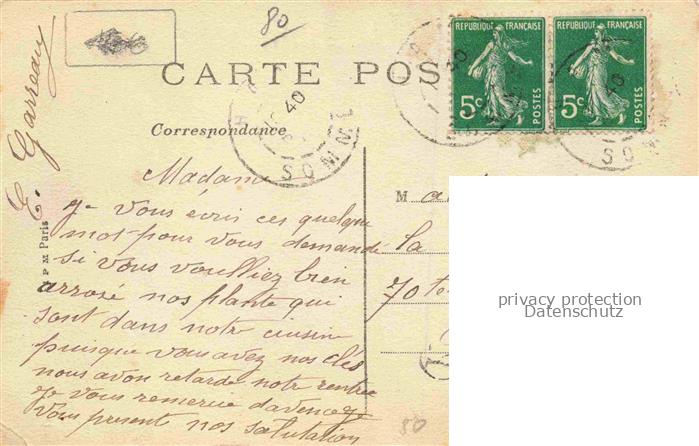 80
RÉPUBLIQUE FRANÇAISE
5c
POSTES
RÉPUBLIQUE FRANÇAISE
5c
POSTES
CARTE POS
Correspondance
SOMME
40
SOMM
40
E. Garreau
P M Paris
Madame
je vous écris ces quelque
mot pour vous demandé
si vous voulliez bien
arrosé nos plante qui
sont dans notre cuisin
puisque vous avez nos clés
nous avon retardé notre rentrée
je vous remercie d'avence je
vous present nos salutation
M
la
70
80
privacy protection
Datenschutz